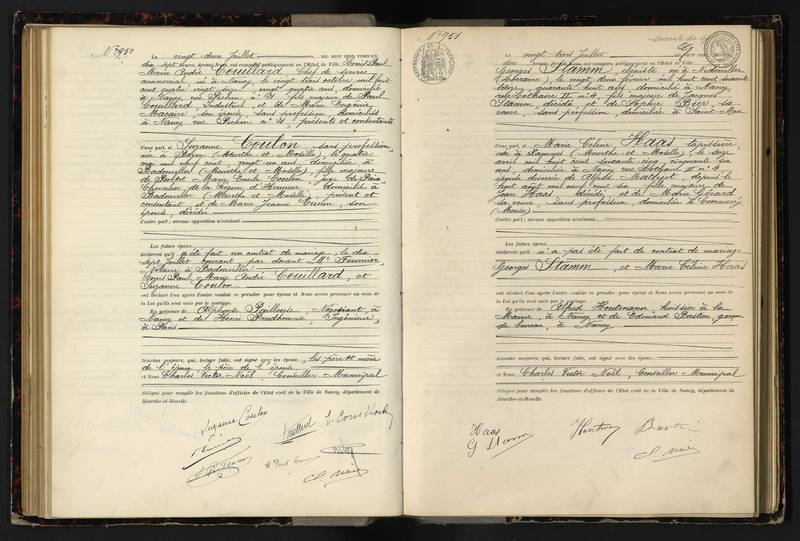 N° 950
Le vingt deux Juillet MIL NEUF CENT VINGT-UN
dix sept heures, devant Nous, ont comparu publiquement en l'Hôtel de Ville Louis Paul
Marie André Couillard Chef de service
commercial né à Nancy, le vingt trois octobre mil huit
cent quatre vingt seize, vingt quatre ans, domicilié
à Nancy, rue fils majeur de Paul
Couillard Industriel et de Marie Eugénie
son épouse, sans profession, domiciliés
à Nancy rue Pichon n° présents et consentants
d'une part, et Suzanne Coulon, sans profession
née à Bayon (Meurthe-et-Moselle), le quatre
mai mil neuf cent vingt un ans, domiciliée à
Badonviller (Meurthe-et-Moselle), fille majeure
de Marie Emile Coulon, juge de Paix
Chevalier de la Légion d'Honneur, domicilié à
Badonviller (Meurthe-et-Moselle), présent et
consentant et de Marie Jeanne son
épouse, décédée
d'autre part ; aucune opposition n'existant
Les futurs époux
déclarent qu'il a été fait un contrat de mariage le dix
sept juillet courant par devant Me Fournier,
notaire à Badonviller
Louis Paul Marie André Couillard, et
Suzanne Coulon
ont déclaré l'un après l'autre vouloir se prendre pour époux et Nous avons prononcé au nom de
la Loi qu'ils sont unis par le mariage.
En présence de Alphonse Négociant, à
Nancy et de Henri Prudhomme, Ingénieur,
à Paris
témoins majeurs, qui, lecture faite, ont signé avec les époux, les père et mère
de l'époux le père de l'épouse
et Nous Charles Victor Noël, Conseiller Municipal
délégué pour remplir les fonctions d'officier de l'Etat civil de la Ville de Nancy, département de
Meurthe-et-Moselle.
Suzanne Coulon
Couillard
C. Noël
N° 951
Le vingt trois Juillet MIL NEUF CENT VINGT-UN
dix heures, devant Nous, ont comparu publiquement en l'Hôtel de Ville
Georges Stamm, ébéniste né à Niederviller
(Lorraine), le vingt deux février mil huit cent soixante
treize, quarante huit ans domicilié à Nancy,
rue n° 4, fils majeur de Jacques
Stamm décédé et de Sophie Bier, sa
veuve, sans profession, domiciliée à Saint-Max
d'une part, et Marie Céline Haas tapissière,
née à (Meurthe-et-Moselle), le seize
avril mil huit cent soixante cinq, cinquante six
ans, domiciliée à Nancy rue n° 4
divorcée de depuis le
huit août mil neuf cent six, fille majeure de
Jean Haas décédé, et de Marie Gérard
sa veuve, sans profession, domiciliée à Commercy
(Meuse)
d'autre part ; aucune opposition n'existant
Les futurs époux
déclarent qu'il n'a pas été fait de contrat de mariage
Georges Stamm, et Marie Céline Haas
ont déclaré l'un après l'autre vouloir se prendre pour époux et Nous avons prononcé au nom de
la Loi qu'ils sont unis par le mariage.
En présence de Alfred Houtmann, huissier à la
Mairie, à Nancy et de Edouard Bastien, garçon
de bureau, à Nancy
témoins majeurs, qui, lecture faite, ont signé avec les époux
et Nous Charles Victor Noël, Conseiller Municipal
délégué pour remplir les fonctions d'officier de l'Etat civil de la Ville de Nancy, département de
Meurthe-et-Moselle.
Haas
G Stamm
C. Noël